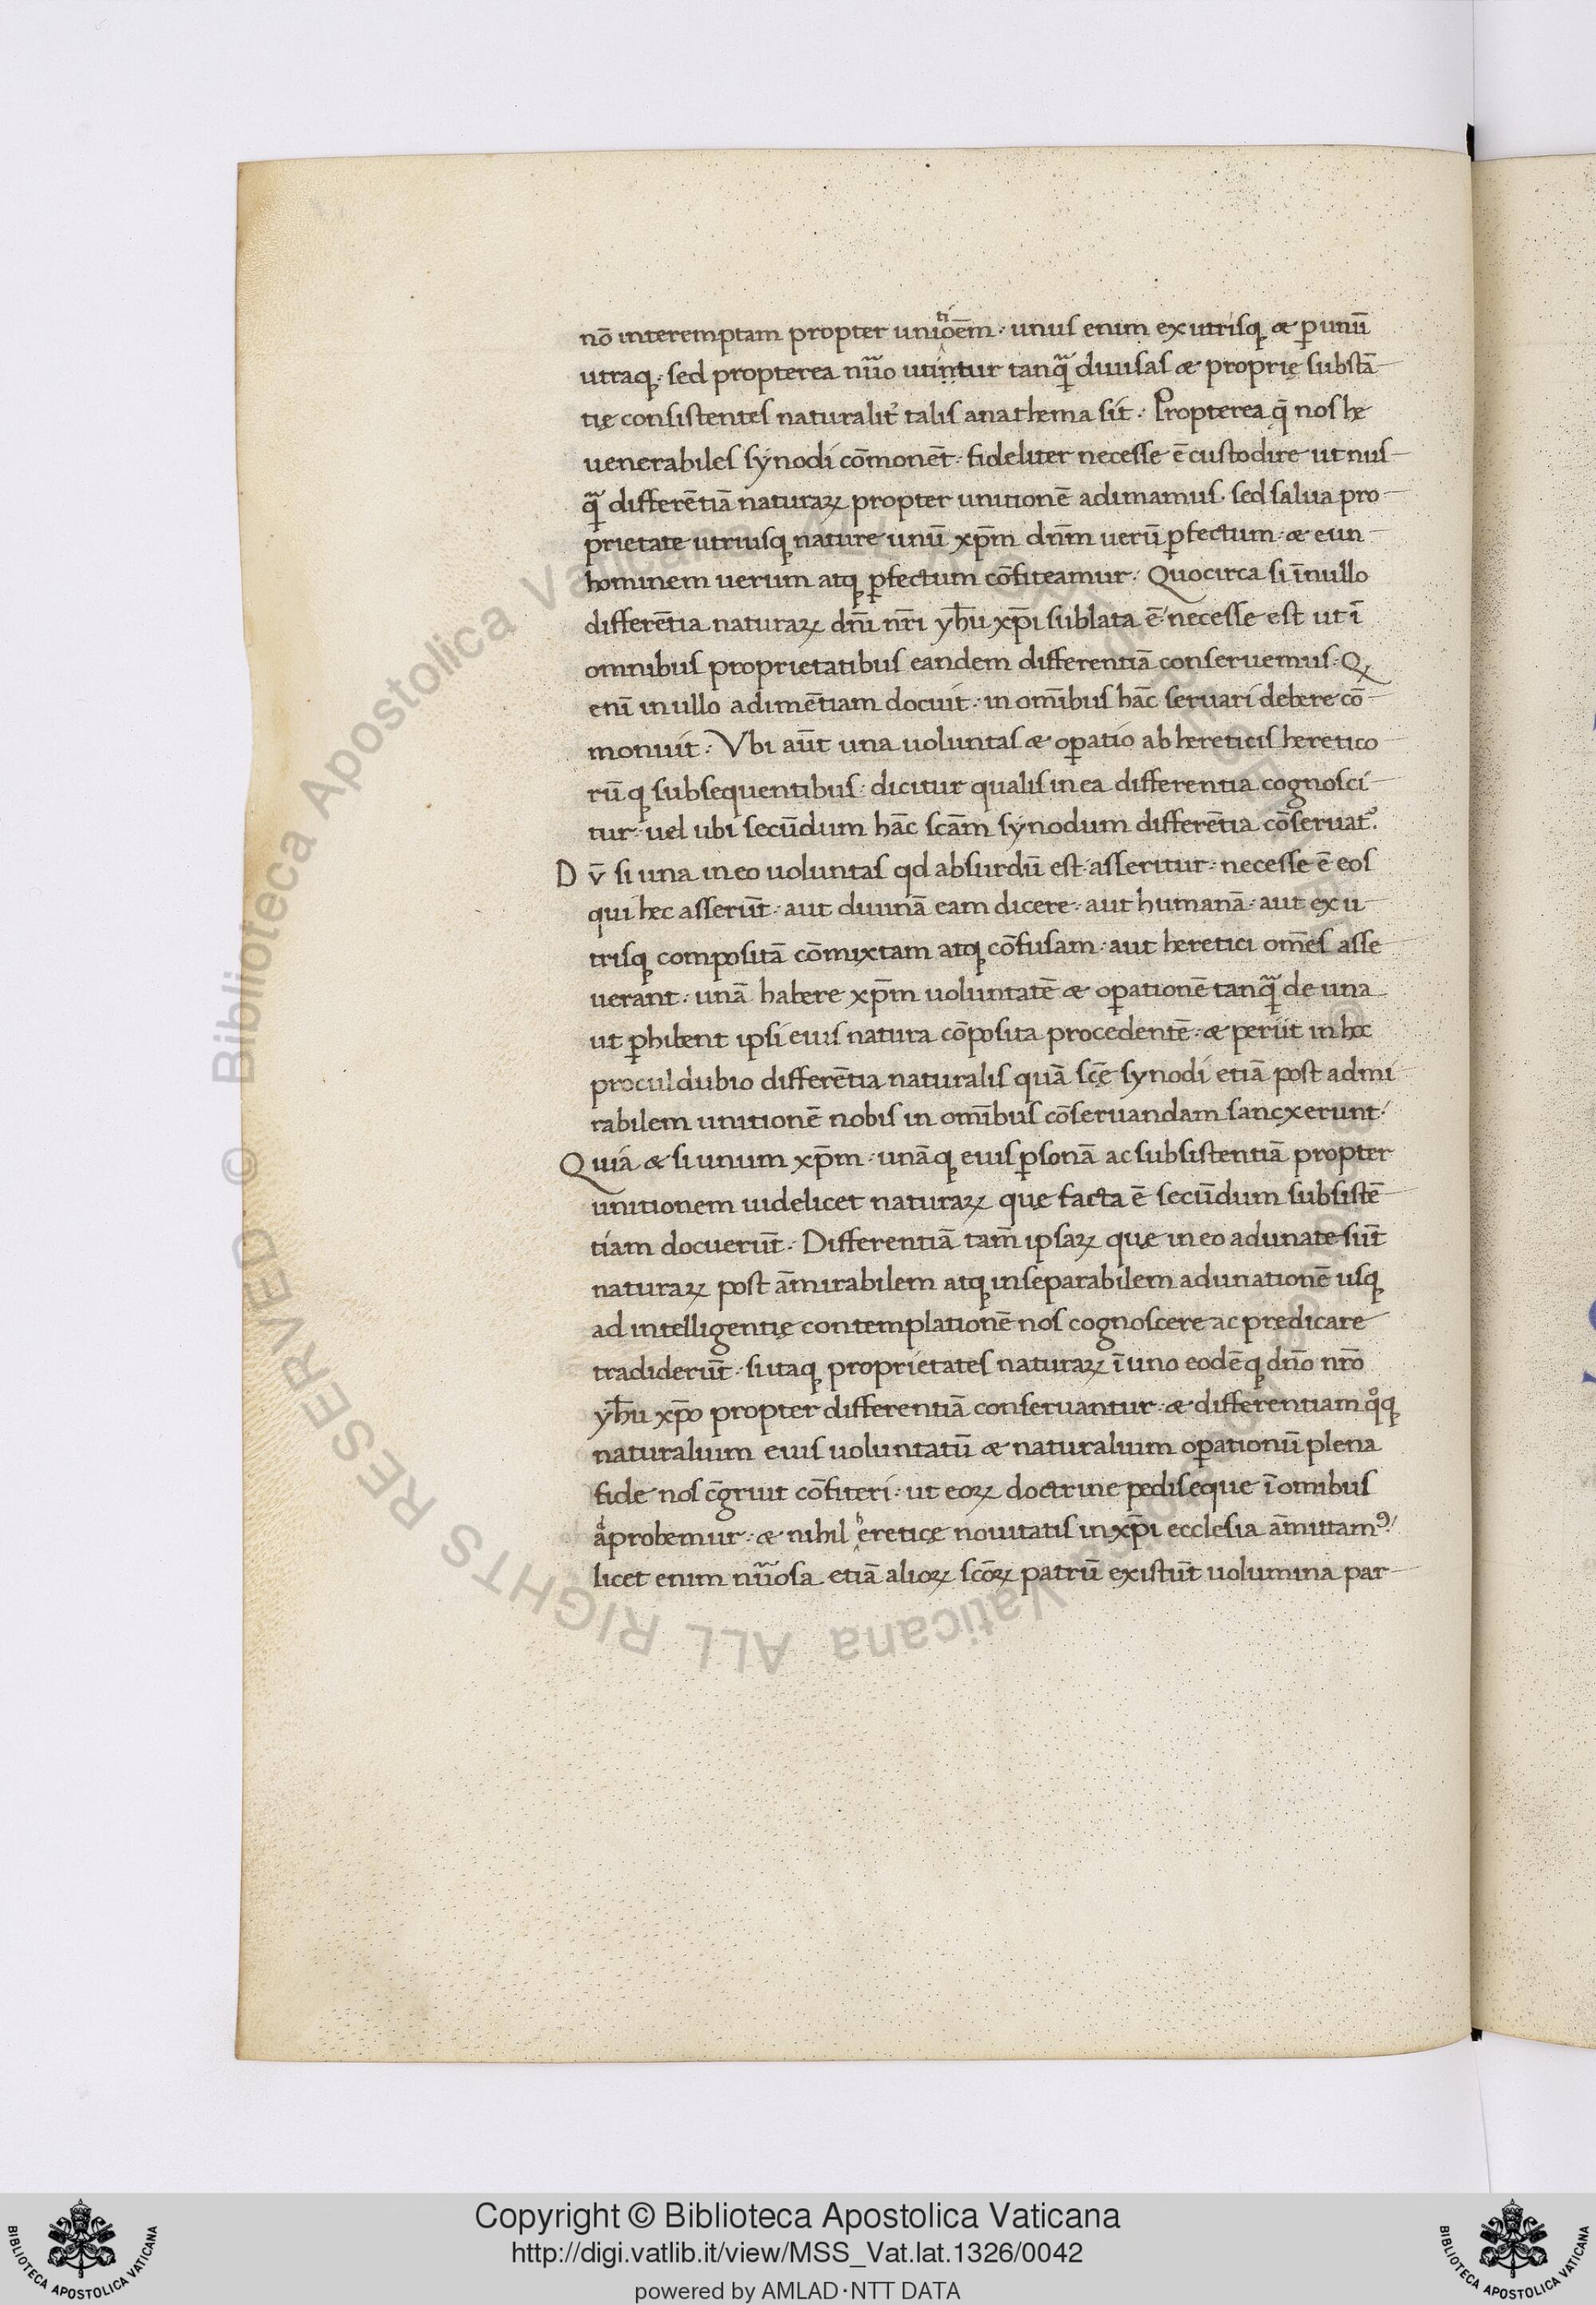 nō interemptam propter unitiōem · unus enim ex utrisq̨ & ꝑ unū
utraq̨ · sed propterea nūo utintur tanq̄ diuisas & proprię substā
tię consistentes naturalit̉ talis anathema sit · Propterea q̄ nos hę
uenerabiles synodi cōmonēt · fideliter necesse ē custodire ut nus
q̄ differētiā naturaꝝ propter unitionē adimamus · sed salua pro
prietate utriusq̨ nature unū xp̄m dn̄m uerū ꝑfectum · & eun
hominem uerum atq̨ ꝑfectum cōfiteamur · Quocirca si ī nullo
differētia naturaꝝ dn̄i nr̄i yh̄u xp̄i sublata ē · necesse est ut ī
omnibus proprietatibus eandem differentiā conseruemus · Qꝫ
enī in ullo adimētiam docuit · in om̄ibus hāc seruari debere cō
monuit · Vbi aūt una uoluntas & oꝑatio ab hereticis heretico
rūq̨ subsequentibus · dicitur qualis in ea differentia cognosci
tur · uel ubi secūdum hāc scām synodum differētia cōseruat̉.
D v̄ si una in eo uoluntas qd absurdū est · asseritur · necesse ē eos
qui hec asserūt · aut diuinā eam dicere · aut humanā · aut ex u
trisq̨ compositā cōmixtam atq̨ cōfusam · aut heretici om̄es asse
uerant · unā habere xp̄m uoluntatē & oꝑationē tanq̄ de una
ut ꝑhibent ipsi eius natura cōposita procedentē · & periit in hoc
procul dubio differētia naturalis quā scę̄ synodi etiā post admi
rabilem unitionē nobis in om̄ibus cōseruandam sancxerunt ·
Quia & si unum xp̄m · unāq̨ eius ꝑsonā ac subsistentiā propter
unitionem uidelicet naturaꝝ quę facta ē secūdum subsistē
tiam docuerūt · Differentiā tam̄ ipsaꝝ quę in eo adunate sūt
naturaꝝ post am̄irabilem atq̨ inseparabilem adunationē usq̨
ad intelligentię contemplationē nos cognoscere ac predicare
tradiderūt · si utaq̨ proprietates naturaꝝ ī uno eodēq̨ dn̄o nr̄o
yh̄u xp̄o propter differentiā conseruantur · & differentiam qͦq̨
naturalium eius uoluntatū & naturalium oꝑationū plena
fide nos c̄gruit cōfiteri · ut eoꝝ doctrine pediseque ī omibus
aprobemur · & nihil heretice nouitatis in xp̄i ecclesia am̄ittamꝰ ·
licet enim nūosa etiā alioꝝ scōꝝ patrū existūt uolumina par
Copyright © Biblioteca Apostolica Vaticana
http://digi.vatlib.it/view/MSS_Vat.lat.1326/0042
powered by AMLAD·NTT DATA
BIBLIOTECA APOSTOLICA VATICANA
BIBLIOTECA APOSTOLICA VATICANA
© Biblioteca Apostolica Vaticana ALL RIGHTS RESERVED
© Biblioteca Apostolica Vaticana ALL RIGHTS RESERVED